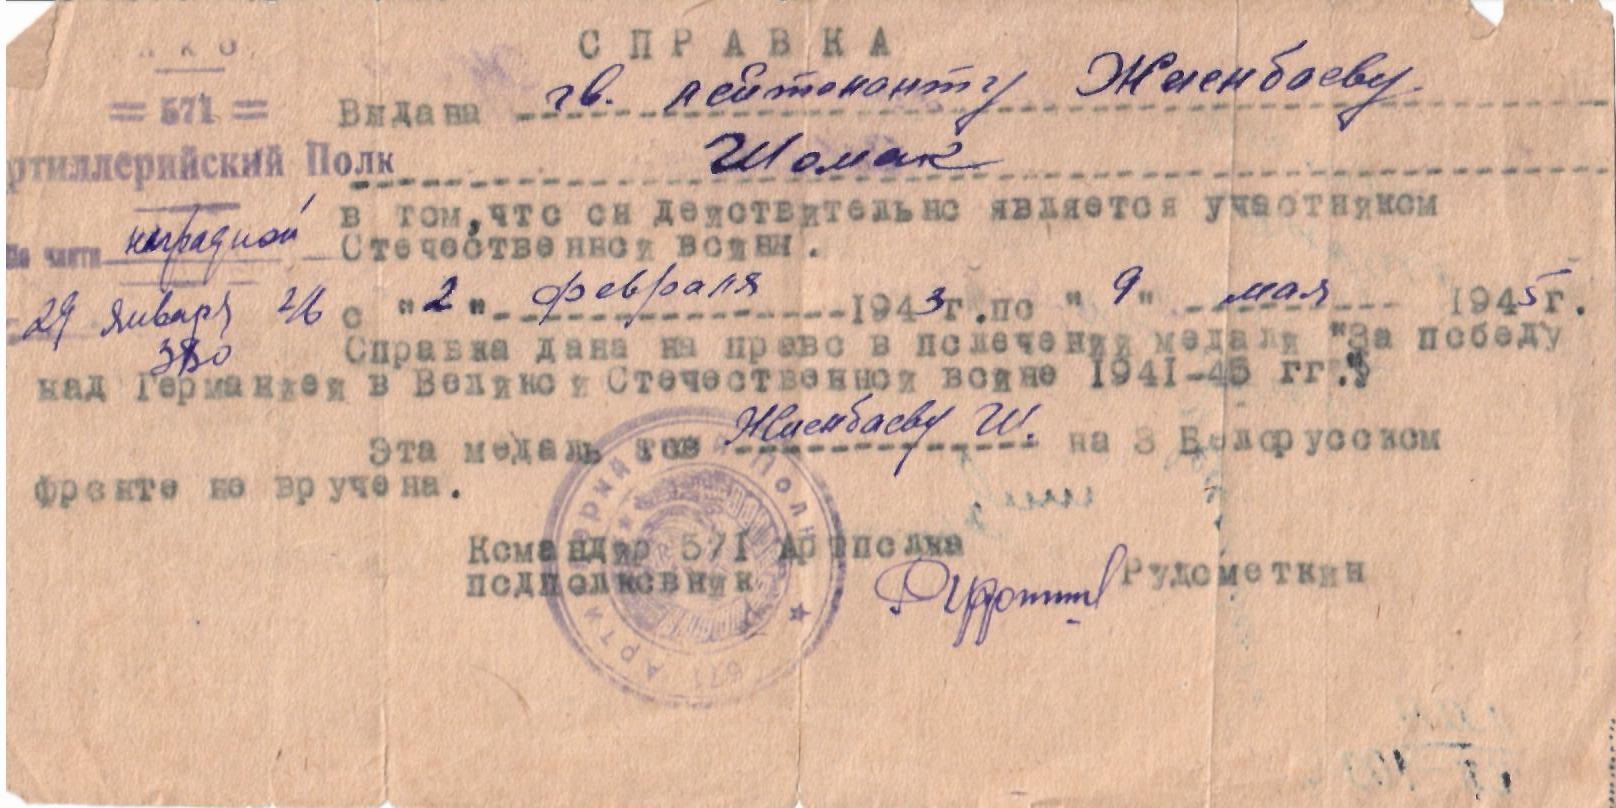 Н К О
СПРАВКА
= 571 =
Артиллерийский Полк
По части наградной
29 января 46
ЗВО
Выдана гв. лейтенанту Жиенбаеву
Шомак
в том, что он действительно является участником
Отечественной войны.
с "2" февраля 1943г. по "9" мая 1945г.
Справка дана на право в полечении медали "За победу
над Германией в Великой Отечественной войне 1941-45 гг."
Эта медаль тов Жиенбаеву Ш. на 3 Белорусском
фронте не вручена.
Командир 571 Артполка
подполковник Рудометкин
571 АРТИЛЛЕРИЙСКИЙ ПОЛК